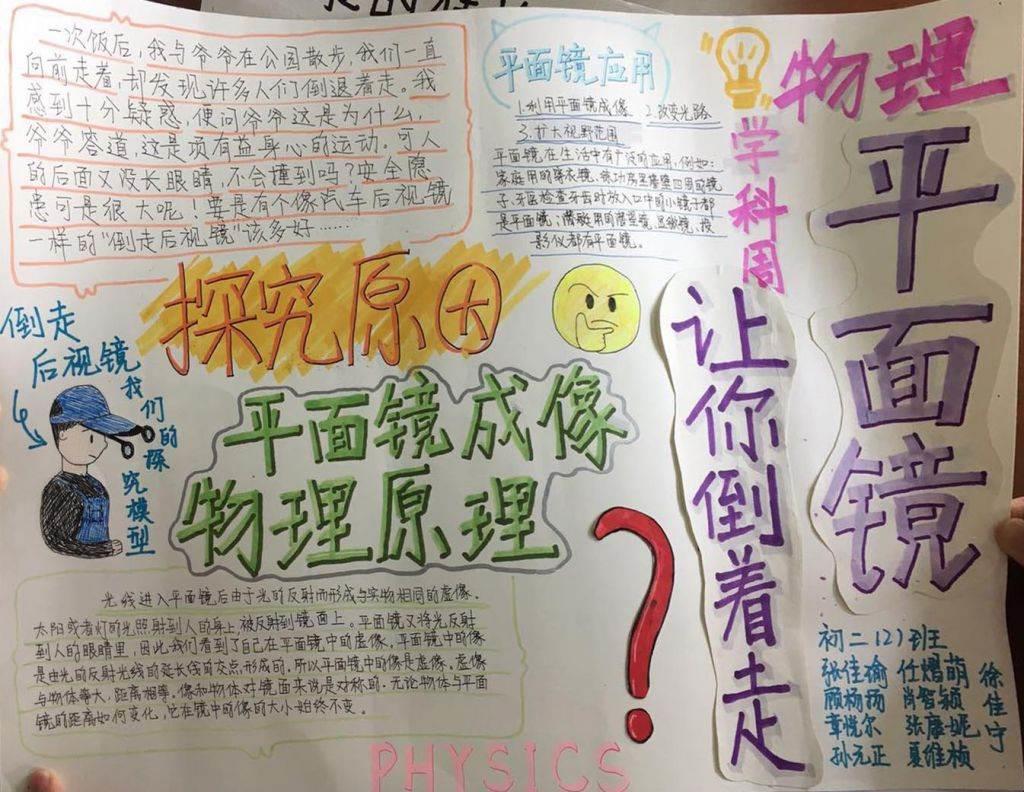 一次饭后，我与爷爷在公园散步，我们一直
向前走着，却发现许多人们倒退着走。我
感到十分疑惑，便问爷爷这是为什么，
爷爷答道，这是项有益身心的运动。可人
的后面又没长眼睛，不会撞到吗？安全隐
患可是很大呢！要是有个像汽车后视镜
一样的“倒走后视镜”该多好……
平面镜应用
1.利用平面镜成像 2.改变光路
3.扩大视野范围
平面镜在生活中有广泛的应用，例如：
家庭用的穿衣镜、练功房里墙壁四周的镜
子、牙医检查牙齿时放入口中的小镜子都
是平面镜；潜艇用的潜望镜、显微镜、投
影仪都有平面镜。
物理
学科周
平面镜
让你倒着走
探究原因
倒走
后视镜
我们的探究模型
平面镜成像
物理原理
?
光线进入平面镜后由于光的反射而形成与实物相同的虚像。
太阳或者灯的光照射到人的身上，被反射到镜面上。平面镜又将光反射
到人的眼睛里，因此我们看到了自己在平面镜中的虚像。平面镜中的像
是由光的反射光线的延长线的交点形成的，所以平面镜中的像是虚像。虚像
与物体等大，距离相等。像和物体对镜面来说是对称的。无论物体与平面
镜的距离如何变化，它在镜中的像的大小始终不变。
初二（2）班
张佳瑜 任熠萌 徐佳宁
顾杨扬 肖智颖
章悦尔 张藤妮
孙元正 夏维桢
PHYSICS